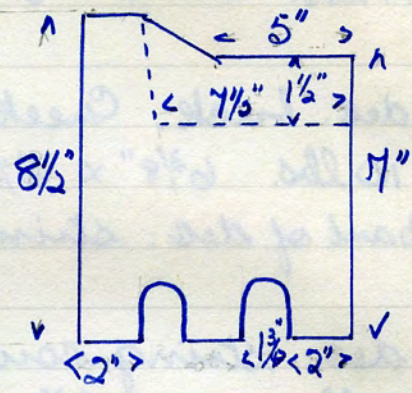 5"
7½" 1½"
8½" 7"
2" 1¾" 2"